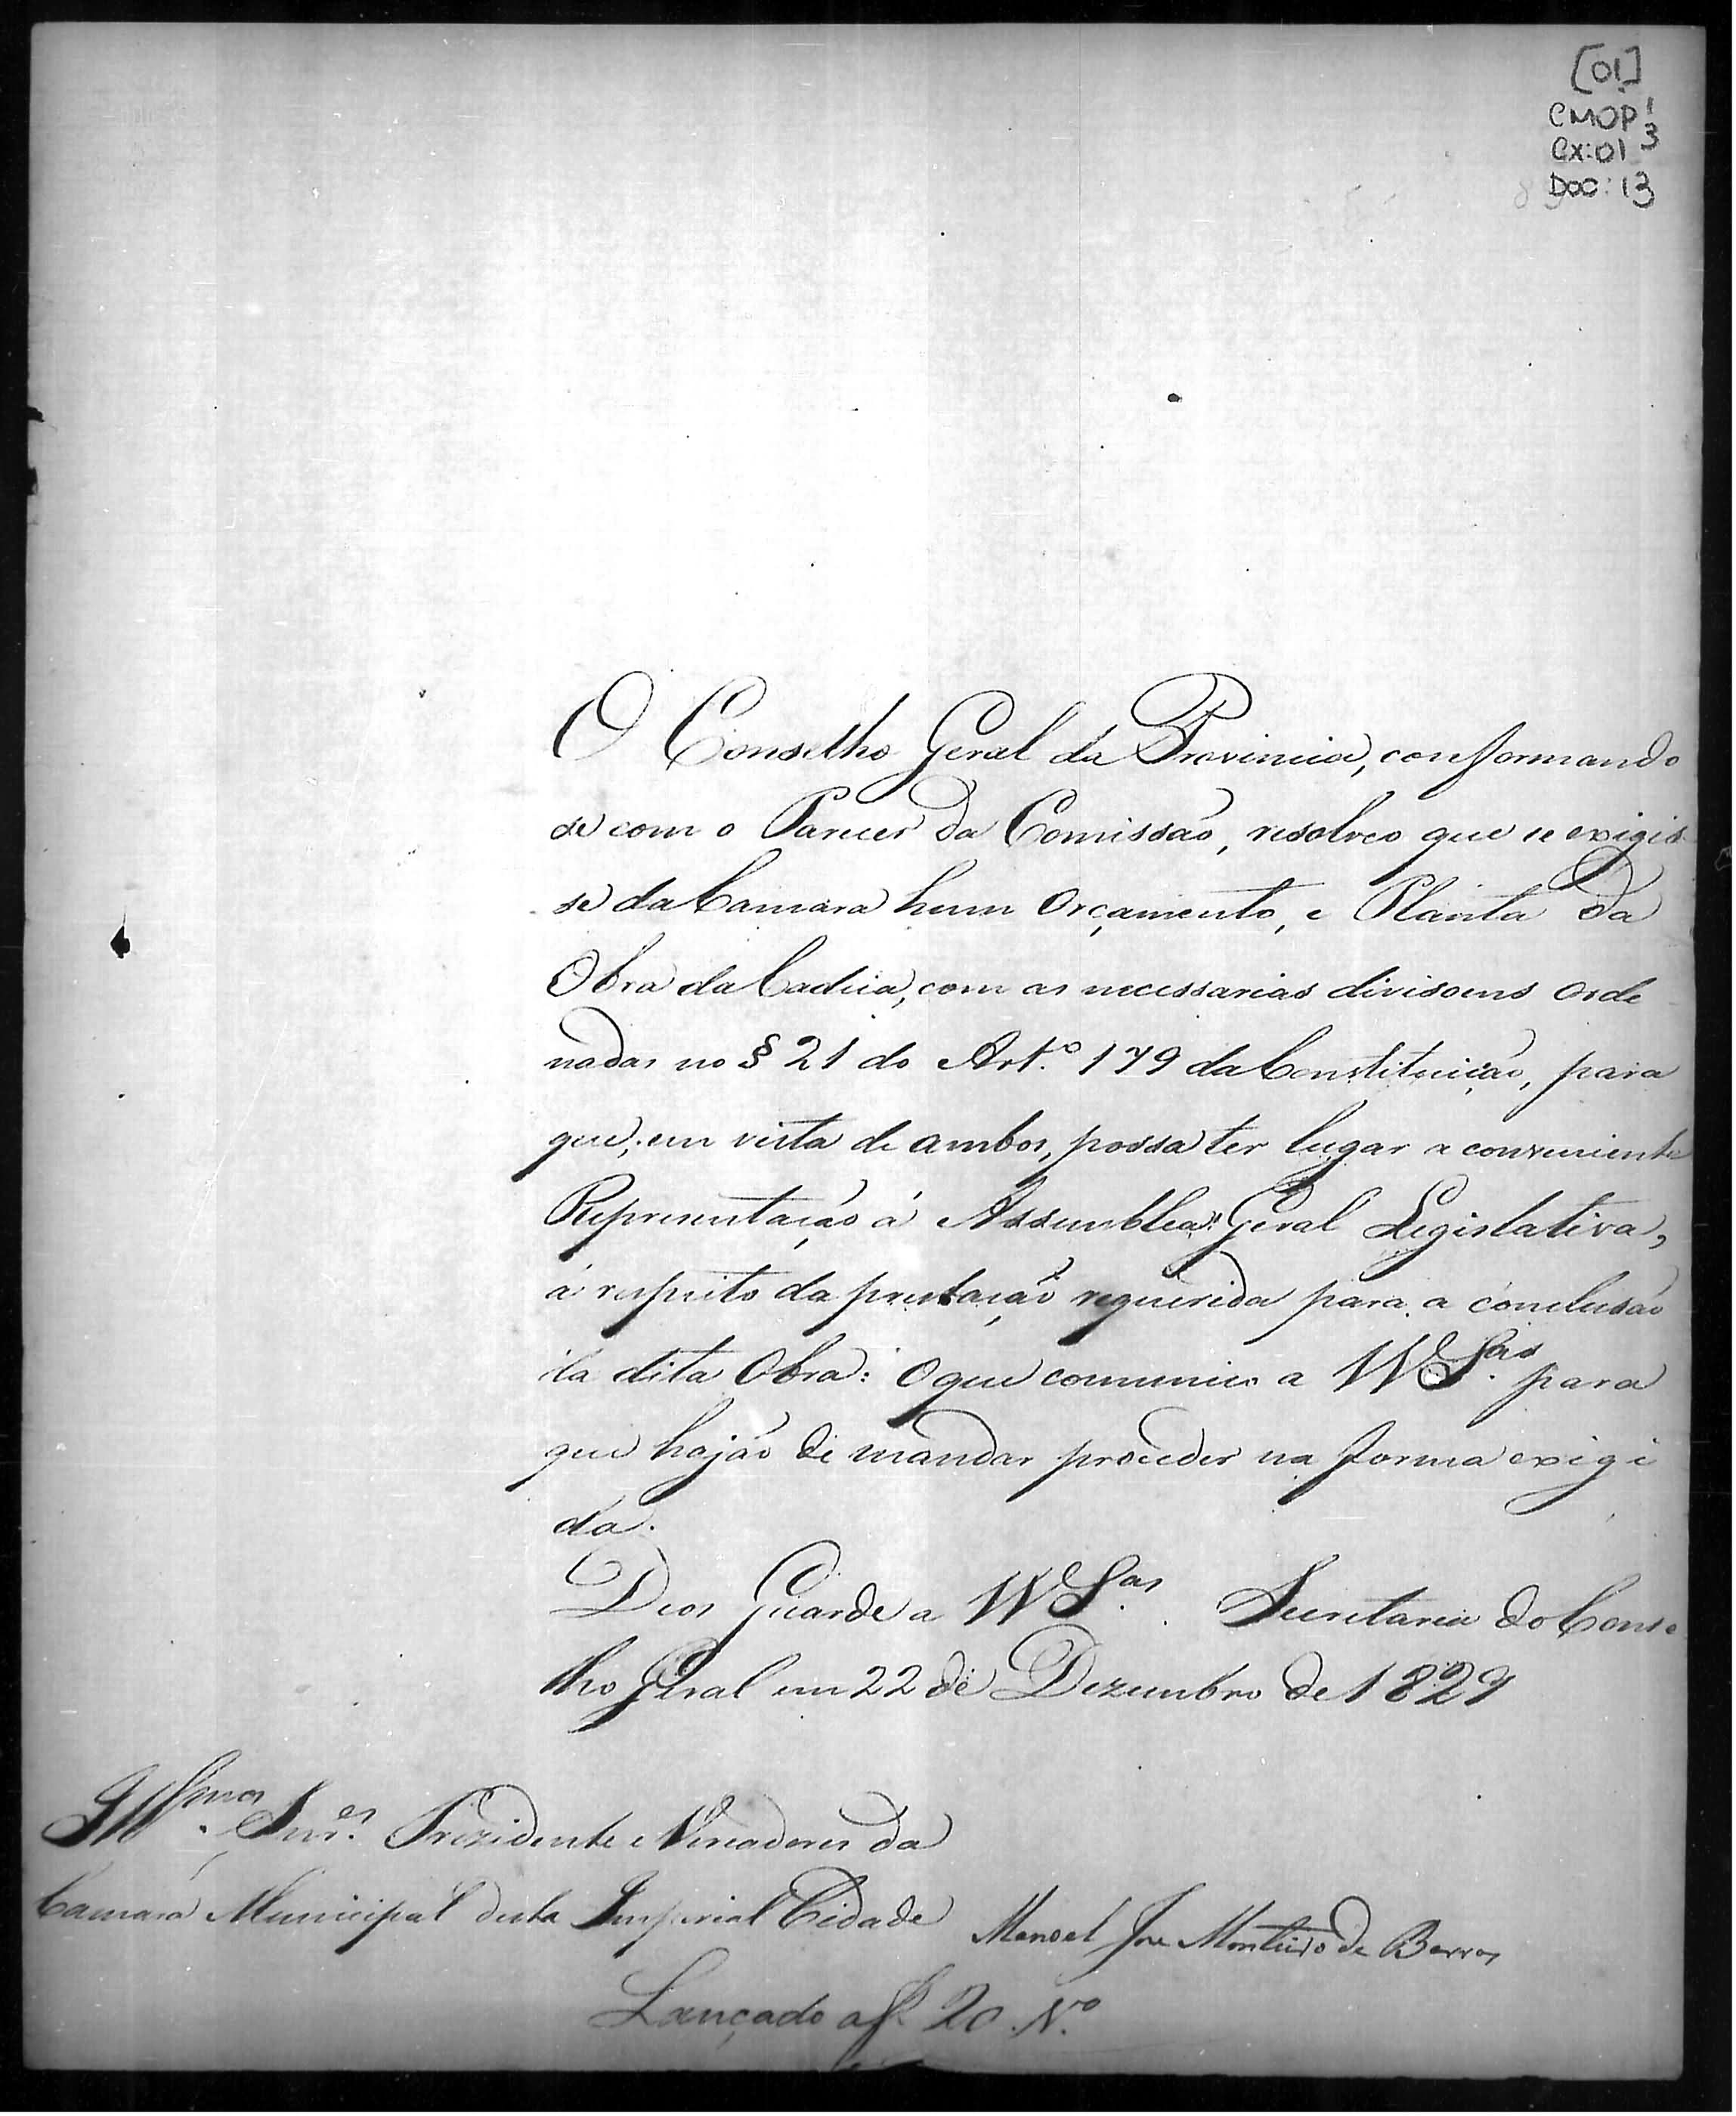 [01]
CMOP 1
Cx: 01 3
Doc: 13
O Conselho Geral da Provincia, conformando
se com o Parecer da Comissão, resolveo que se exigis
se da Camara hum Orçamento, e Planta da
Obra da Cadeia, com as necessarias divisoens orde
nadas no § 21 do Art.º 179 da Constituição, para
que, em vista de ambos, possa ter lugar a conveniente
Reprezentação á Assemblea Geral Legislativa,
á respeito da prestação requerida para a conclusão
da dita Obra: O que comunico a VV S.as para
que hajão de mandar proceder na forma exigi
da.
Deos Guarde a VV S.as Secretaria do Conse
lho Geral em 22 de Dezembro de 1829
Ill.mos Snr.es Prezidente e Vereadores da
Camara Municipal desta Imperial Cidade
Manoel Jose Monteiro de Barros
Lançado a f. 20 .N.º